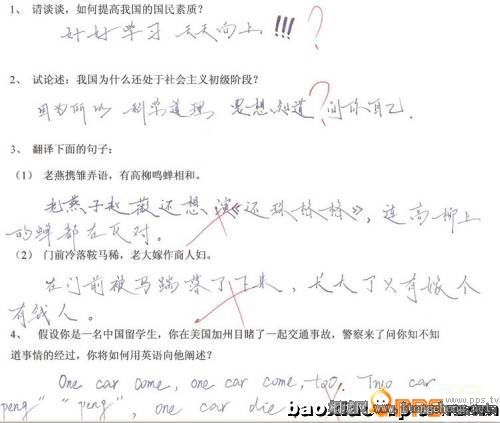 1、 请谈谈，如何提高我国的国民素质？
好好学习 天天向上!!!
?
2、 试论述：我国为什么还处于社会主义初级阶段？
因为所以 科学道理 思想知道 问你自己.
?
3、 翻译下面的句子：
（1） 老燕携雏弄语，有高柳鸣蝉相和。
老燕子赵薇还想演《还珠格格》，连高柳上
的蝉都在反对。
（2） 门前冷落鞍马稀，老大嫁作商人妇。
在门前被马踹落了下来，长大了又有嫁个
有钱人。
4、 假设你是一名中国留学生，你在美国加州目睹了一起交通事故，警察来了问你知不知
道事情的经过，你将如何用英语向他阐述？
One car come, one car come, too. Two car
"peng" "peng", one car die